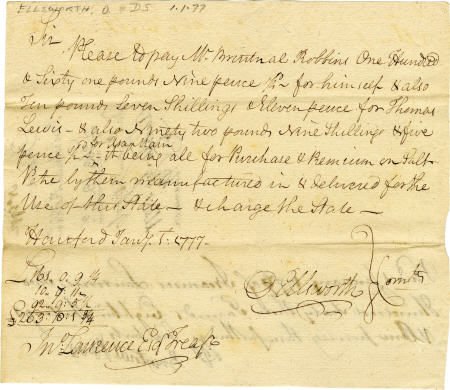 ELLSWORTH, O = DS 1.1.77
Sir
Please to pay Mr. Robbins One Hundred
& Sixty one pounds Nine pence for himself & also
Ten pounds Seven Shillings & Eleven pence for Thomas
Lewis — & also Ninety two pounds Nine Shillings & five
pence for Captain being all for Purchase & Premium on Salt-
Petre by them manufactured in & delivered for the
Use of this State — & charge the State —
Hartford Jany. 1st. 1777 —
161. 0. 9
O Ellsworth } Comtte
Lawrence Esqr Treasr